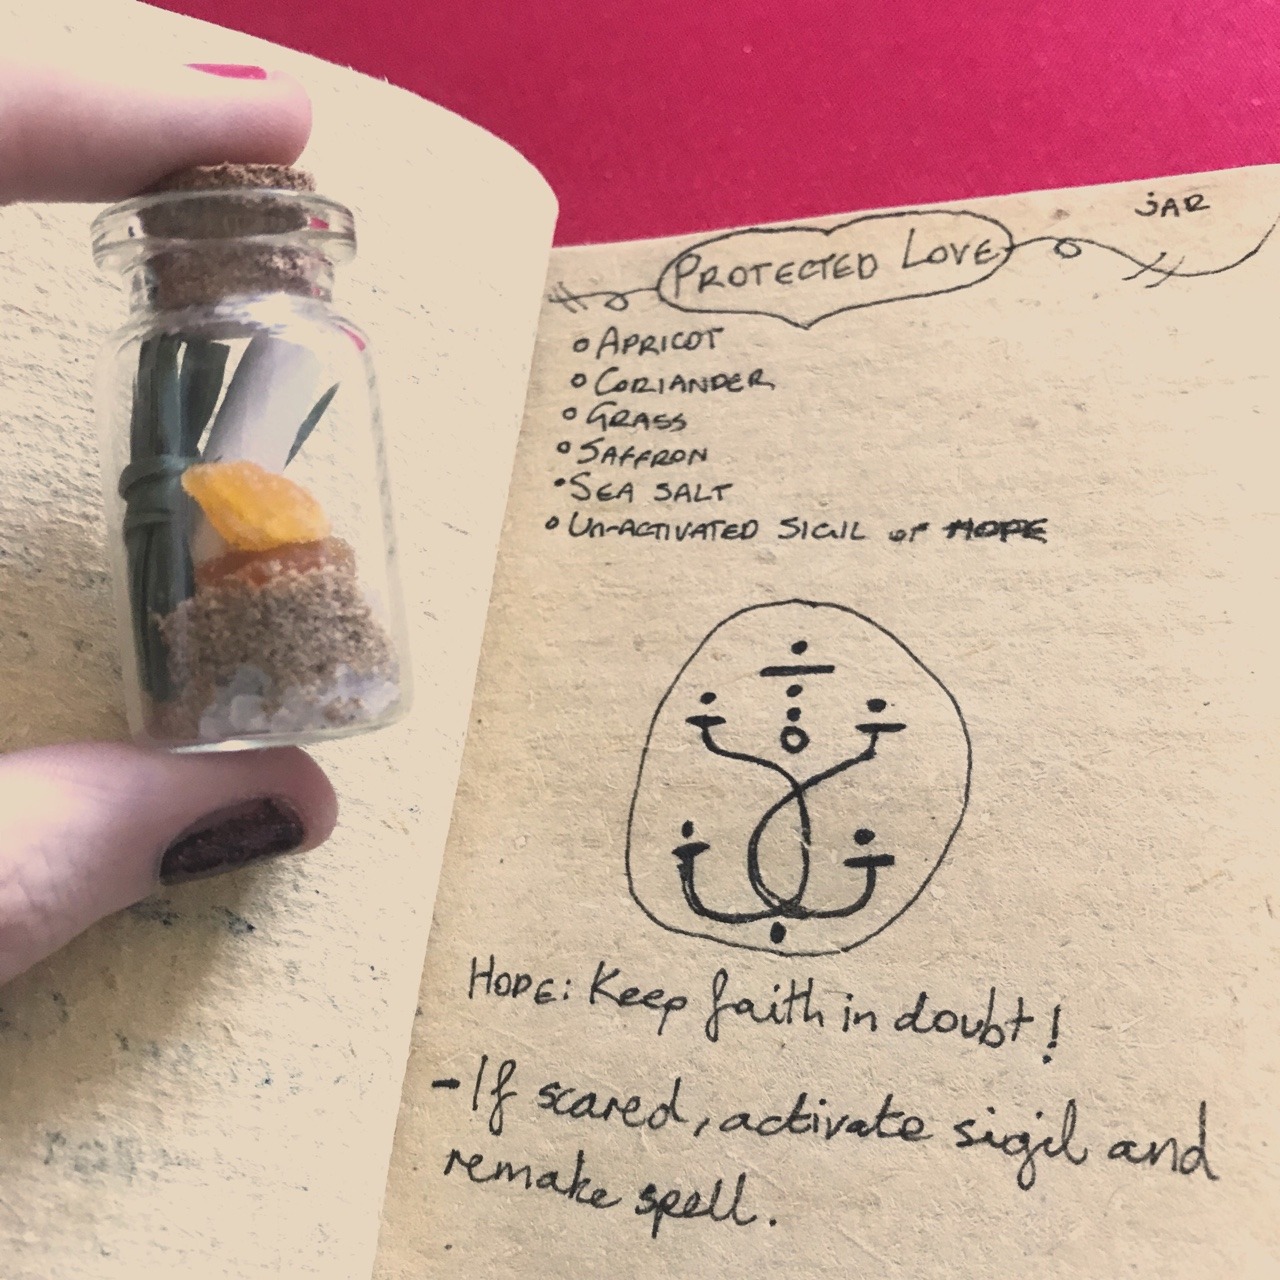 jAR
PROTECTED LOVE
APRICOT
CORIANDER
GRASS
SAFFRON
SEA SALT
UN-ACTIVATED SIGIL OF HOPE
HOPE: Keep faith in doubt!
-If scared, activate sigil and
remake spell.